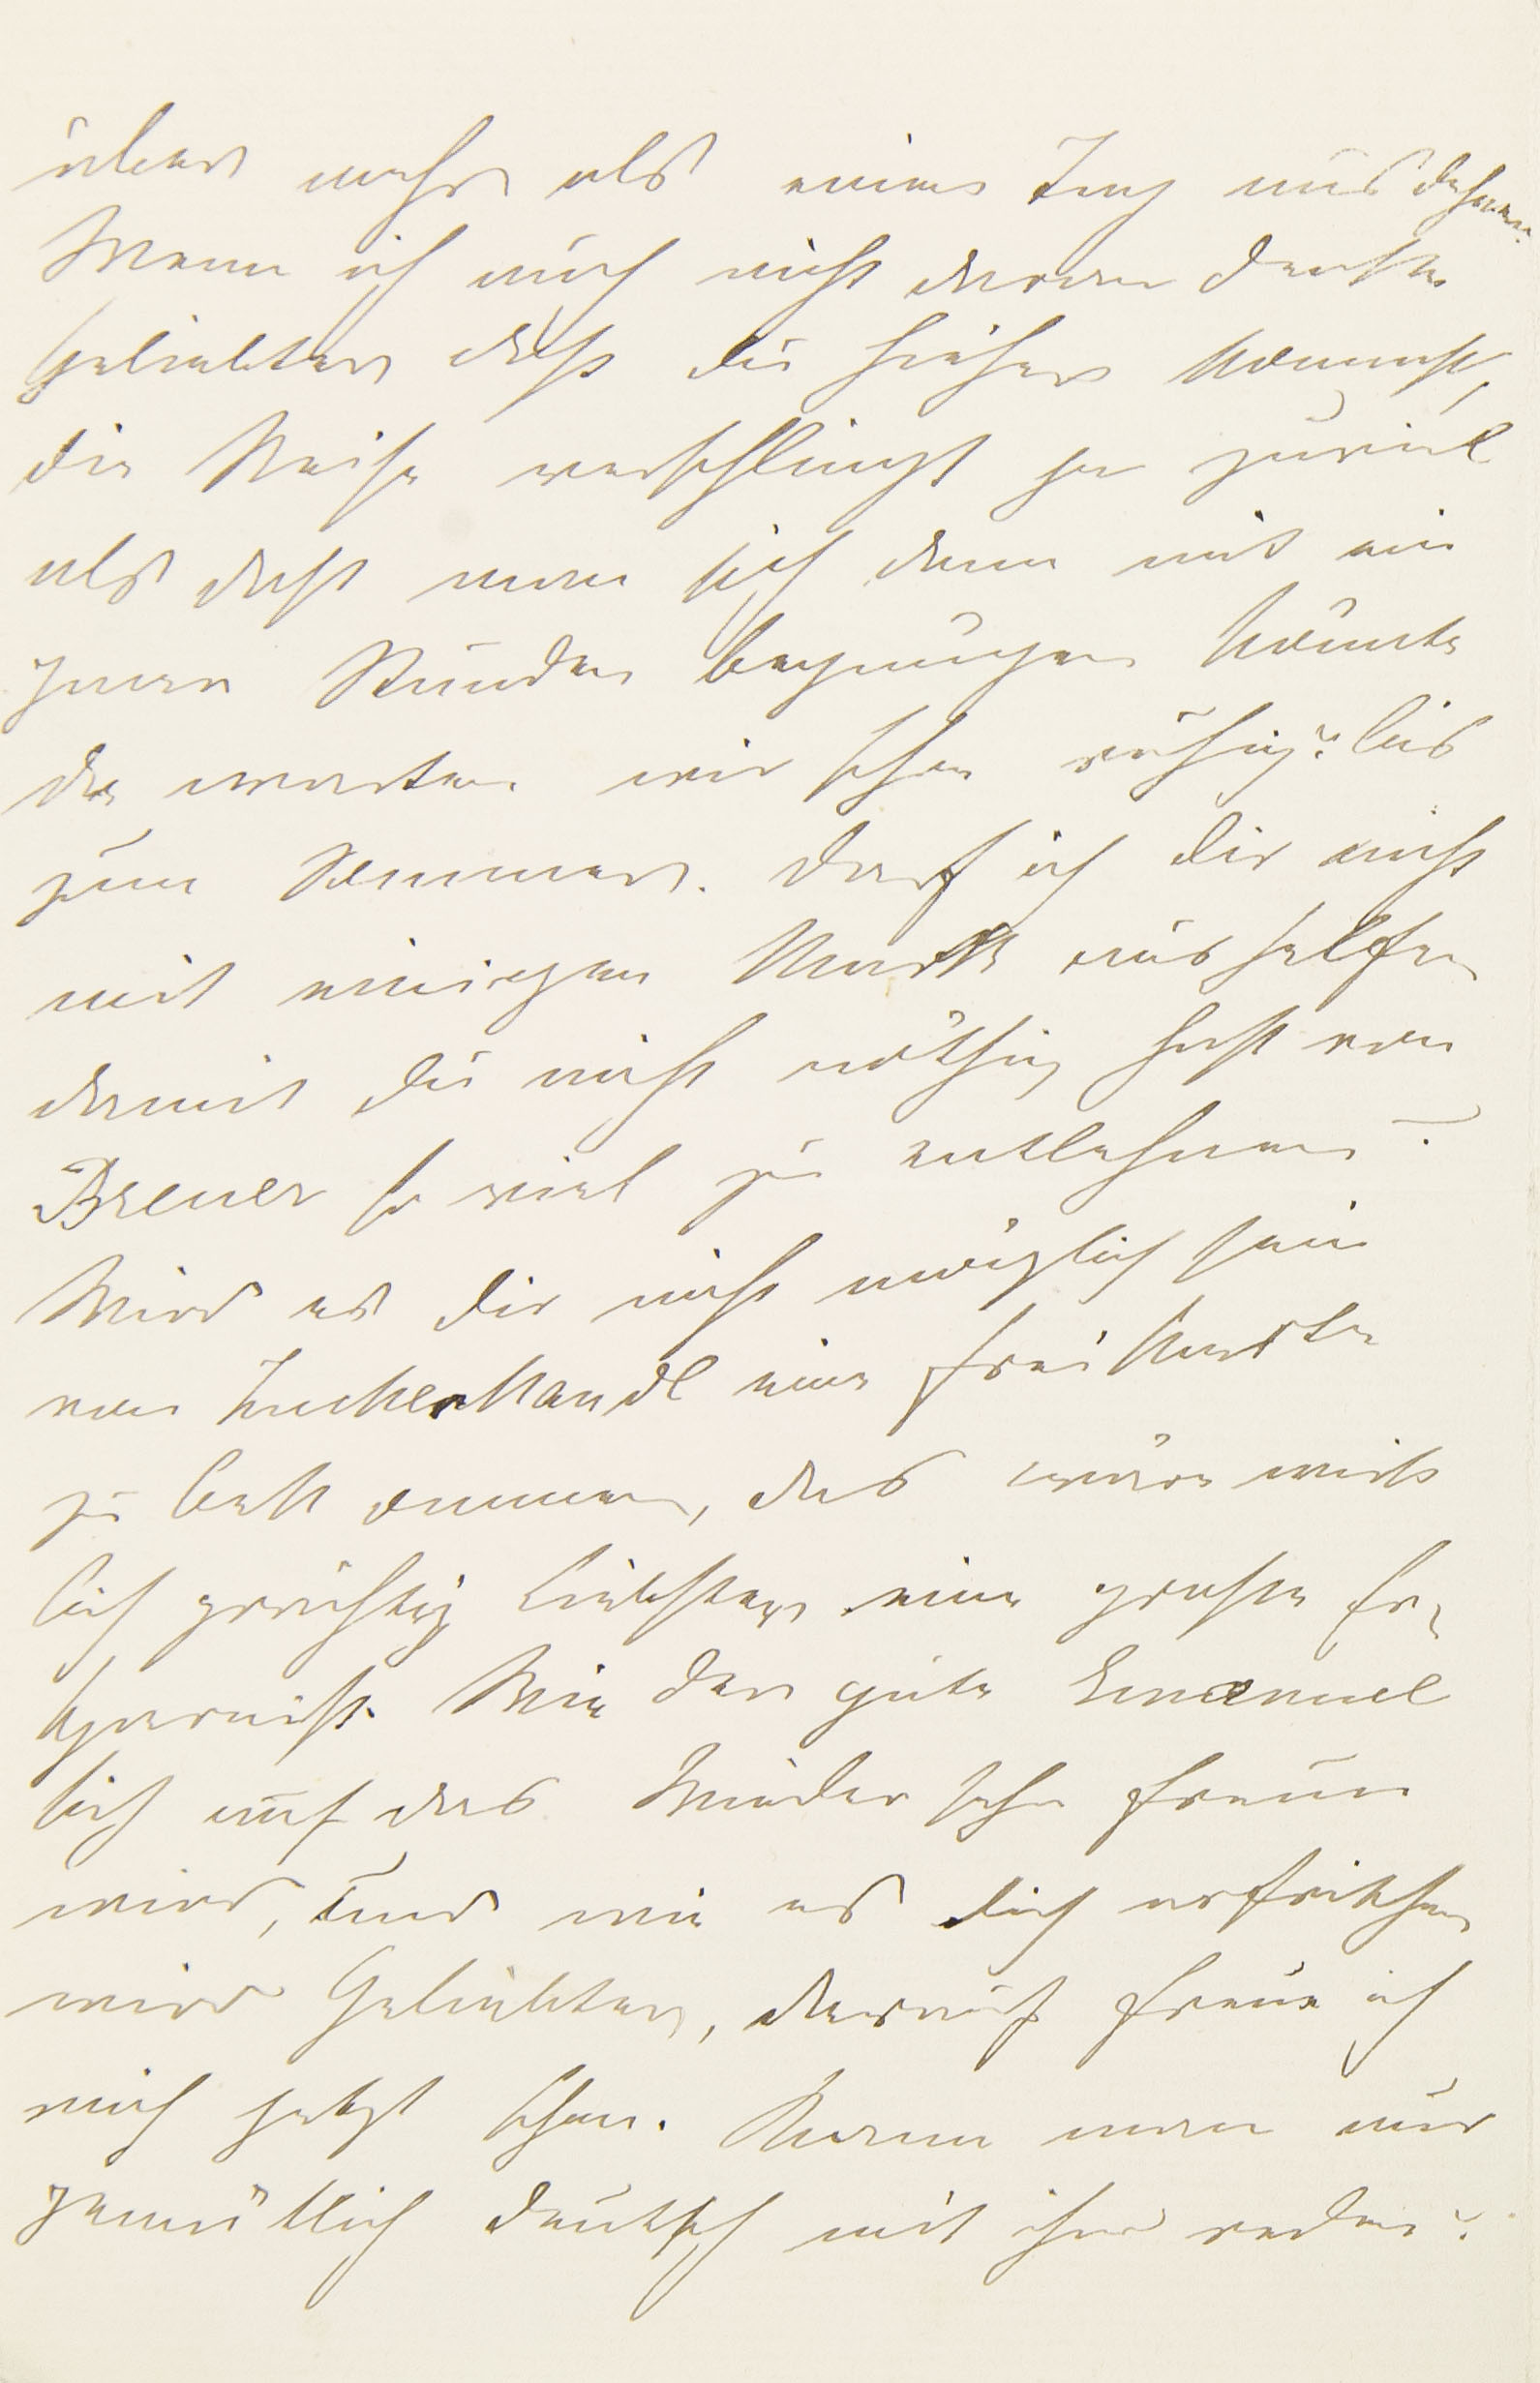 über mehr als einen Tag ausdehnen.
Wenn ich auch nicht daran denke
Geliebter daß du hieher kommst,
die Reise verschlingt ja zuviel
als daß man sich dann mit ein
paar Stunden begnügen könnte
da warten wir schon ruhig bis
zum Sommer. Darf ich dir nicht
mit einigen Mark aushelfen
damit du nicht nöthig hast von
Breuer so viel zu entlehnen?
Wird es dir nicht möglich sein
von Zuckerkandl eine Freikarte
zu bekommen, das wäre wirk
lich prächtig Liebster eine große Er-
sparniß. Wie der gute Emanuel
sich auf das Wiedersehn freun
wird, und wie es dich erfrischen
wird Geliebter, darauf freue ich
mich jetzt schon. Kann man nur
gemütlich deutsch mit ihm reden?